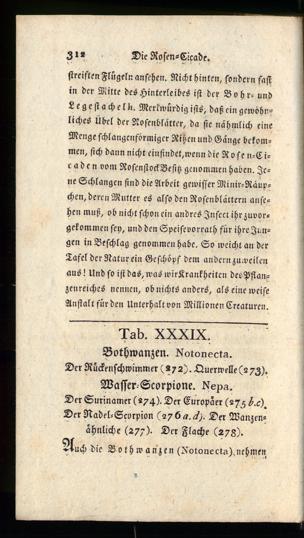 312 Die Rosen-Cicade.
streiften Flügeln ansehen. Nicht hinten, sondern fast
in der Mitte des Hinterleibes ist der Bohr- und
Legestachelh. Merkwürdig ists, daß ein gewöhn-
liches Übel der Rosenblätter, da sie nähmlich eine
Menge schlangenförmiger Ritzen und Gänge bekom-
men, sich dann nicht einfindet, wenn die Rosen-Ci-
caden vom Rosenstock Besitz genommen haben. Je-
ne Schlangen sind die Arbeit gewisser Minir-Räup-
chen, deren Mutter es also den Rosenblättern anse-
hen muß, ob nicht schon ein andres Insect ihr zuvor-
gekommen sey, und den Speisevorrath für ihre Jun-
gen in Beschlag genommen habe. So weicht an der
Tafel der Natur ein Geschöpf dem andern zuweilen
aus! Und so ist das, was wir Krankheiten des Pflan-
zenreiches nennen, ob nichts anders, als eine weise
Anstalt für den Unterhalt von Millionen Creaturen.
Tab. XXXIX.
Bothwanzen. Notonecta.
Der Rückenschwimmer (272). Querwelle (273).
Wasser-Scorpione. Nepa.
Der Surinamer (274). Der Europäer (275 b.c).
Der Nadel-Scorpion (276 a.d). Der Wanzen-
ähnliche (277). Der Flache (278).
Auch die Bothwanzen (Notonecta), nehmen